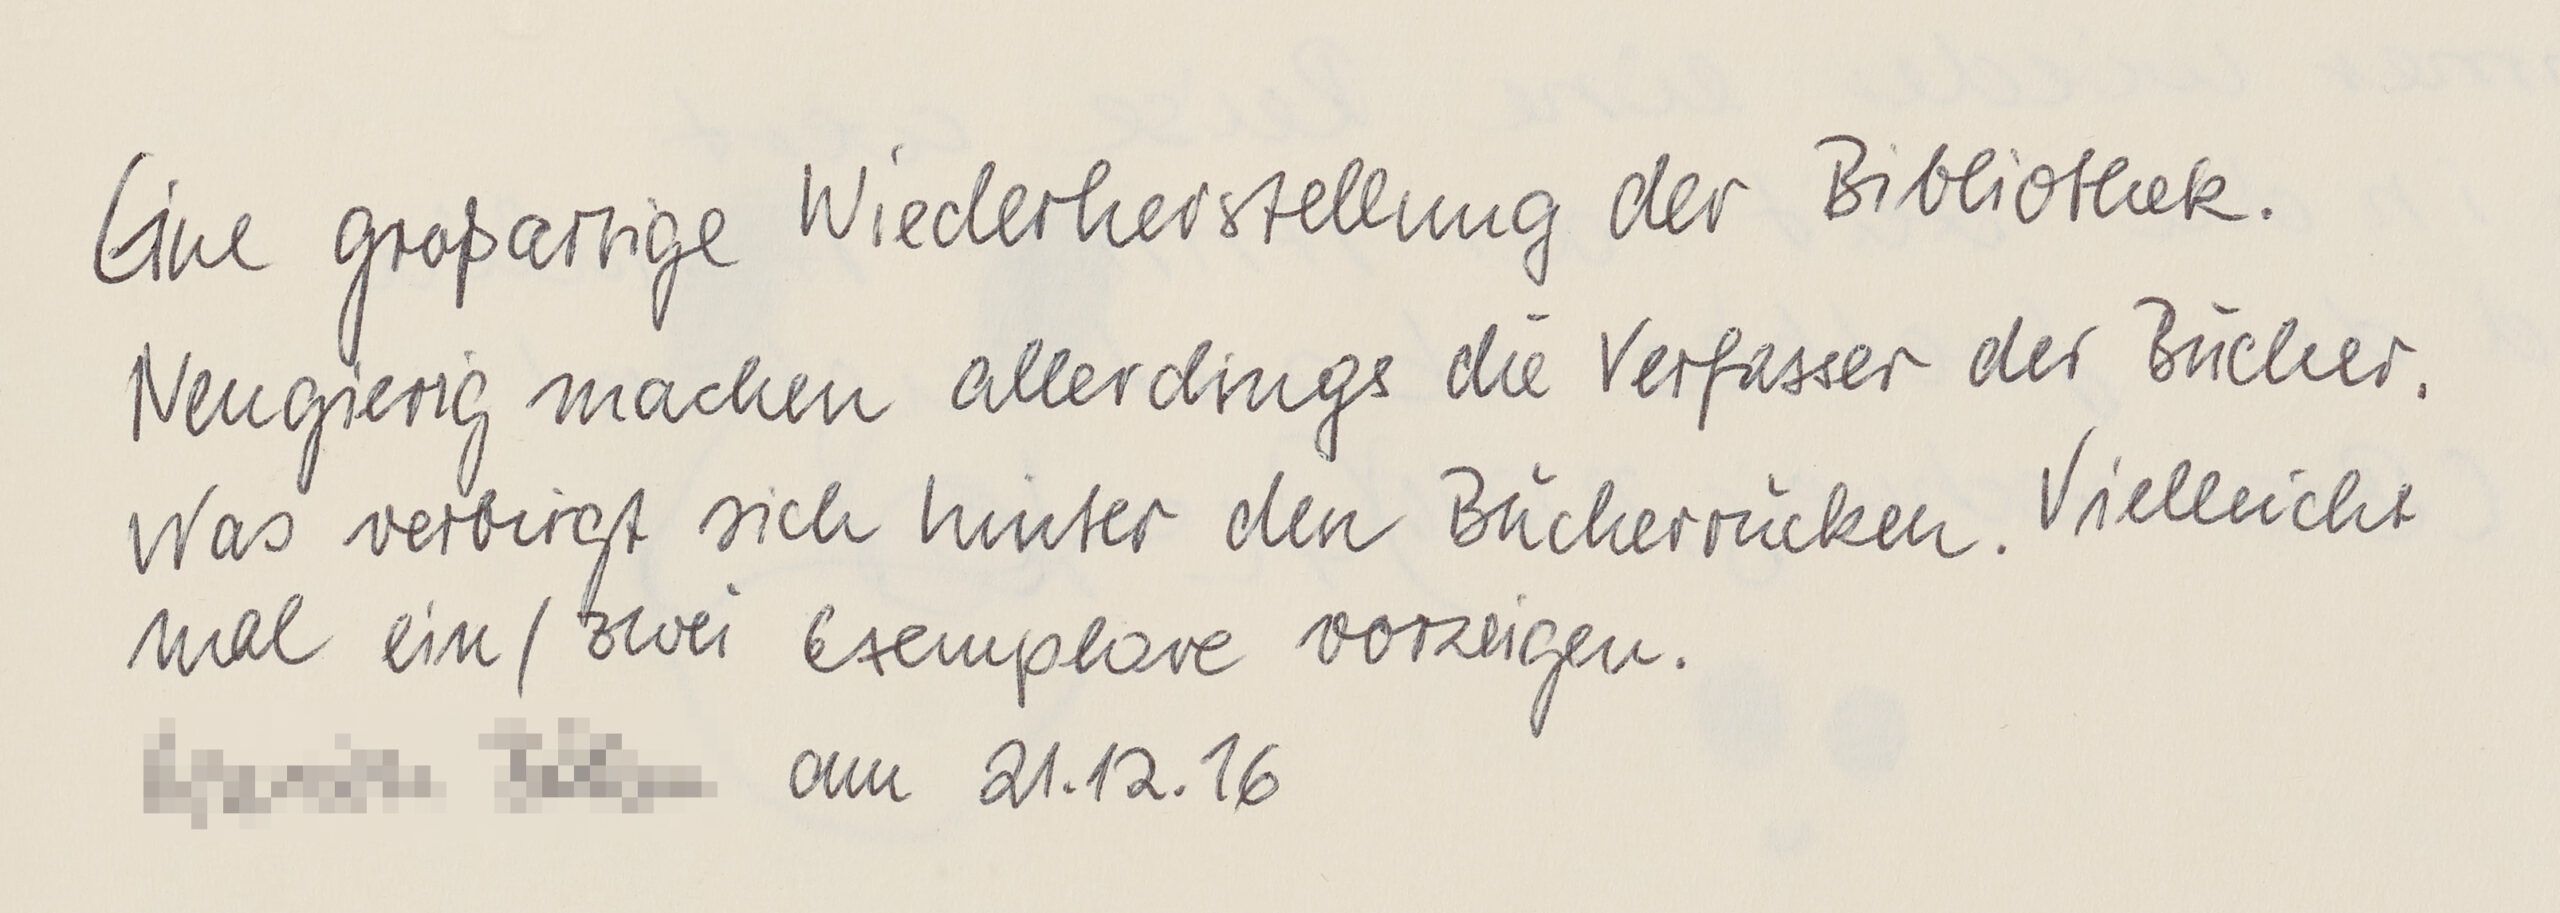 Eine großartige Wiederherstellung der Bibliothek.
Neugierig machen allerdings die Verfasser der Bücher.
Was verbirgt sich hinter den Bücherrücken. Vielleicht
mal ein/zwei Exemplare vorzeigen.
am 21.12.16